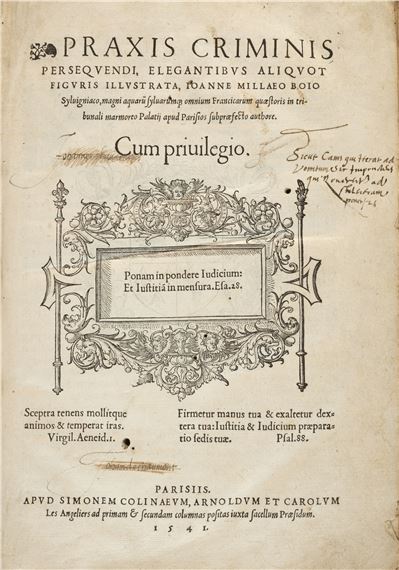 PRAXIS CRIMINIS
PERSEQVENDI, ELEGANTIBVS ALIQVOT
FIGVRIS ILLVSTRATA, IOANNE MILLAEO BOIO
Syluigniaco, magni aquarũ syluarumq; omnium Francicarum quæstoris in tri-
bunali marmoreo Palatij apud Parisios subpræfecto authore.
Cum priuilegio.
Sicut Canis qui
ad
Ponam in pondere Iudicium:
Et Iustitiã in mensura. Esa. 28.
Sceptra tenens mollitque
animos & temperat iras.
Virgil. Aeneid. 1.
Firmetur manus tua & exaltetur dex-
tera tua: Iustitia & Iudicium præpara-
tio sedis tuæ. Psal. 88.
PARISIIS.
APVD SIMONEM COLINAEVM, ARNOLDVM ET CAROLVM
Les Angeliers ad primam & secundam columnas positas iuxta sacellum Præsidum.
1541.